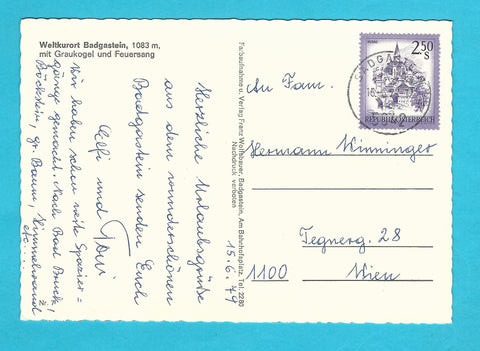 Weltkurort Badgastein, 1083 m,
mit Graukogel und Feuersang
Herzliche Urlaubsgrüße
aus dem wunderschönen
Badgastein senden Euch
Elfi und Toni
Wir haben schon weite Spazier=
gänge gemacht. Nach Bad Bruck,
Böckstein, gr. Baum, Himmelwand
etc....
Farbaufnahme u. Verlag Franz Wolfbauer, Badgastein, Am Bahnhofsplatz, Tel. 2280
Nachdruck verboten
15.6.79
Nr.
2.50
S
REPUBLIK ÖSTERREICH
BADGASTEIN
An Fam.
Hermann Winninger
Tegnerg. 28
1100 Wien